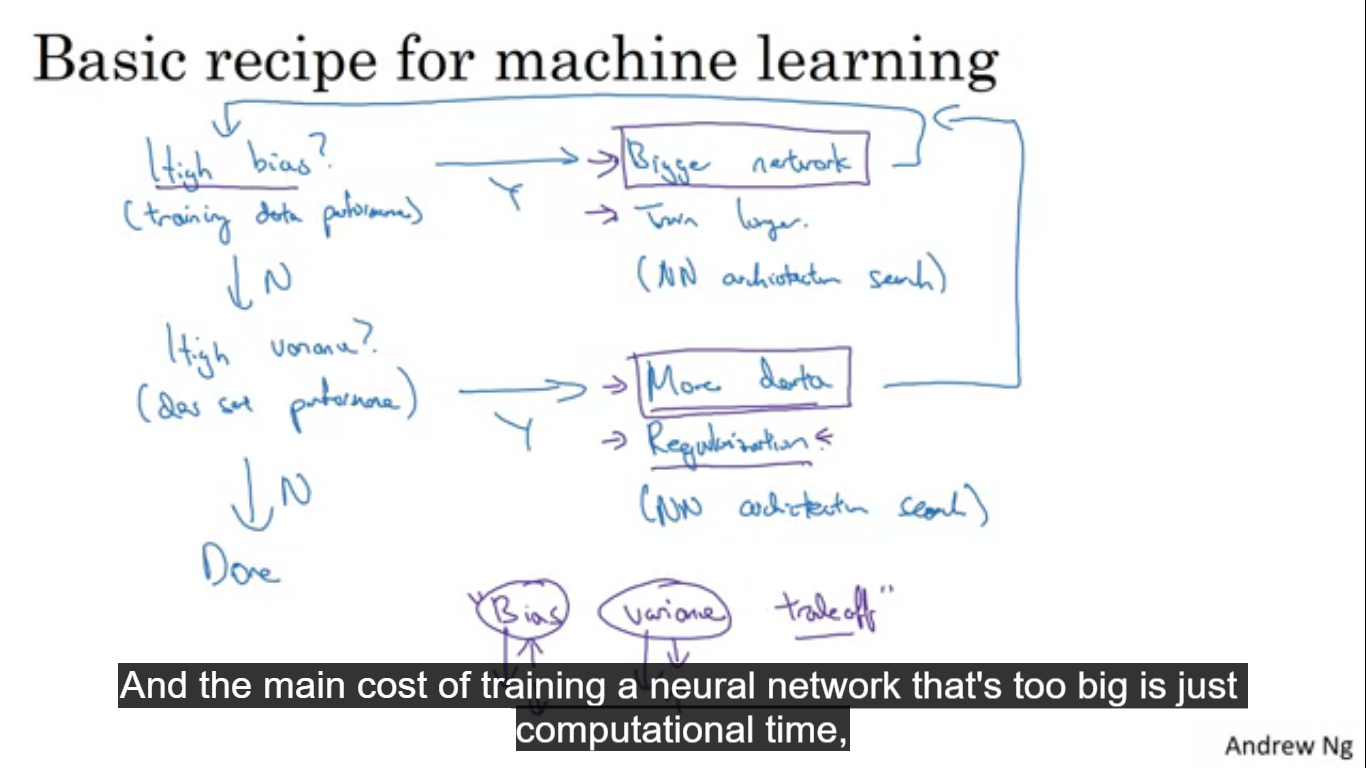 Basic recipe for machine learning
High bias?
Y
Bigger network
(training data performance)
Train longer.
N
(NN architecture search)
High variance?
(dev set performance)
Y
More data
Regularization
N
(NN architecture search)
Done
"Bias variance tradeoff"
And the main cost of training a neural network that's too big is just
computational time,
Andrew Ng